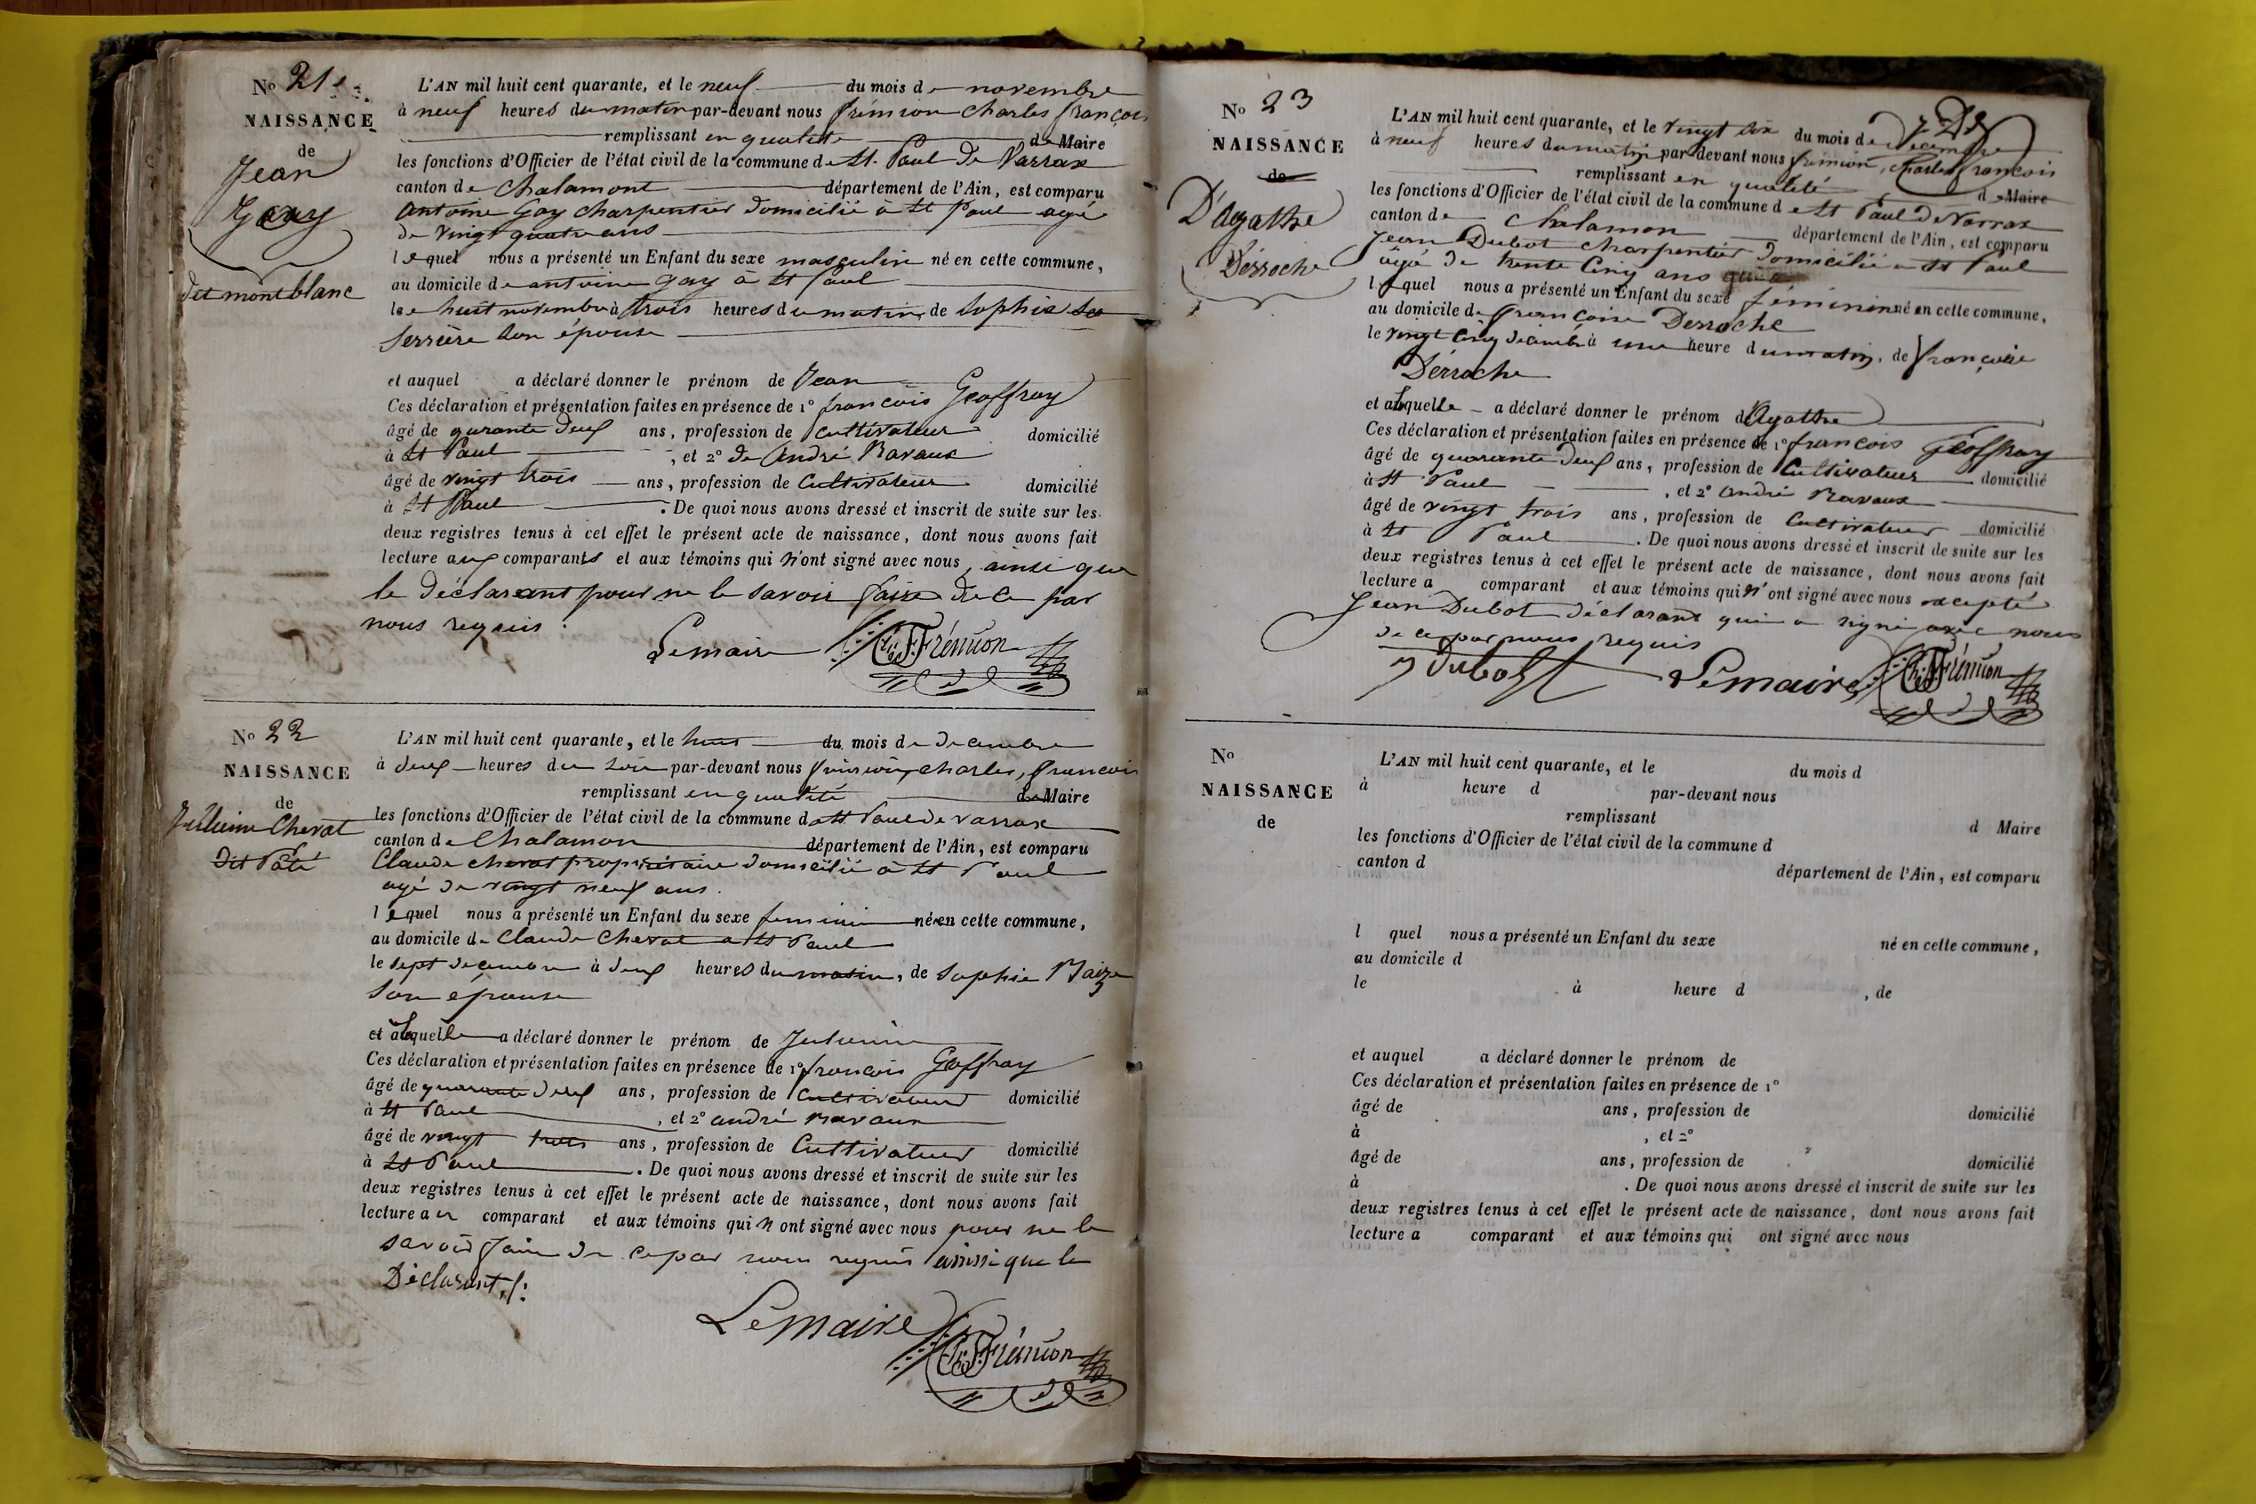 No 21
NAISSANCE
de
Jean
Gay
dit montblanc
L'AN mil huit cent quarante, et le neuf du mois de novembre
à neuf heures du matin par-devant nous frémion Charles françois
remplissant en qualité de Maire
les fonctions d'Officier de l'état civil de la commune de St Paul de Varax
canton de Chalamont département de l'Ain, est comparu
Antoine Gay charpentier domicilié à St Paul agé
de vingt quatre ans
lequel nous a présenté un Enfant du sexe masculin né en cette commune,
au domicile de antoine gay à St Paul
le huit novembre à trois heures du matin, de Sophie
Serrière son épouse
et auquel a déclaré donner le prénom de Jean
Ces déclaration et présentation faites en présence de 1° françois Geoffray
âgé de quarante deux ans, profession de Cultivateur domicilié
à St Paul, et 2° de André Ravaux
âgé de vingt trois ans, profession de Cultivateur domicilié
à St Paul. De quoi nous avons dressé et inscrit de suite sur les
deux registres tenus à cet effet le présent acte de naissance, dont nous avons fait
lecture aux comparants et aux témoins qui n'ont signé avec nous, ainsi que
le déclarant pour ne le savoir faire de ce par
nous requis
Lemaire Ch F Frémion
No 22
NAISSANCE
de
Julienne Chevat
dit Pâté
L'AN mil huit cent quarante, et le huit du mois de decembre
à deux heures du soir par-devant nous frémion, charles, francois
remplissant en qualité de Maire
les fonctions d'Officier de l'état civil de la commune de St Paul de varax
canton de Chalamon département de l'Ain, est comparu
Claude chevat propriétaire domicilié à St Paul
agé de vingt neuf ans.
lequel nous a présenté un Enfant du sexe feminin né en cette commune,
au domicile de Claude Chevat a St Paul
le sept decembre à deux heures du matin, de Sophie
son épouse
et à laquelle a déclaré donner le prénom de Julienne
Ces déclaration et présentation faites en présence de 1° francois Geoffray
âgé de quarante deux ans, profession de Cultivateur domicilié
à St Paul, et 2° andré Ravaux
âgé de vingt trois ans, profession de Cultivateur domicilié
à St Paul. De quoi nous avons dressé et inscrit de suite sur les
deux registres tenus à cet effet le présent acte de naissance, dont nous avons fait
lecture au comparant et aux témoins qui n'ont signé avec nous pour ne le
savoir faire de ce par nous requis ainsi que le
Déclarant
Lemaire Ch F Frémion
No 23
NAISSANCE
de
D'agathe
Derroche
L'AN mil huit cent quarante, et le vingt six du mois de decembre
à neuf heures du matin par-devant nous frémion, Charles francois
remplissant en qualité de Maire
les fonctions d'Officier de l'état civil de la commune de St Paul de Varax
canton de Chalamon département de l'Ain, est comparu
Jean Dubot charpentier domicilié a St Paul
âgé de trente Cinq ans
lequel nous a présenté un Enfant du sexe féminin né en cette commune,
au domicile de françoise Derroche
le vingt Cinq décembre à une heure du matin, de françoise
Dérroche
et à laquelle a déclaré donner le prénom d'Agathe
Ces déclaration et présentation faites en présence de 1° francois Géoffray
âgé de quarante deux ans, profession de Cultivateur domicilié
à St Paul, et 2° andré Ravaux
âgé de vingt trois ans, profession de Cultivateur domicilié
à St Paul. De quoi nous avons dressé et inscrit de suite sur les
deux registres tenus à cet effet le présent acte de naissance, dont nous avons fait
lecture a comparant et aux témoins qui n'ont signé avec nous excepté
Jean Dubot déclarant qui a signé avec nous
de ce par nous requis
J Dubost Lemaire Ch F Frémion
No
NAISSANCE
de
L'AN mil huit cent quarante, et le du mois d
à heure d par-devant nous
remplissant d Maire
les fonctions d'Officier de l'état civil de la commune d
canton d département de l'Ain, est comparu
l quel nous a présenté un Enfant du sexe né en cette commune,
au domicile d
le à heure d , de
et auquel a déclaré donner le prénom de
Ces déclaration et présentation faites en présence de 1°
âgé de ans, profession de domicilié
à , et 2°
âgé de ans, profession de domicilié
à . De quoi nous avons dressé et inscrit de suite sur les
deux registres tenus à cet effet le présent acte de naissance, dont nous avons fait
lecture a comparant et aux témoins qui ont signé avec nous